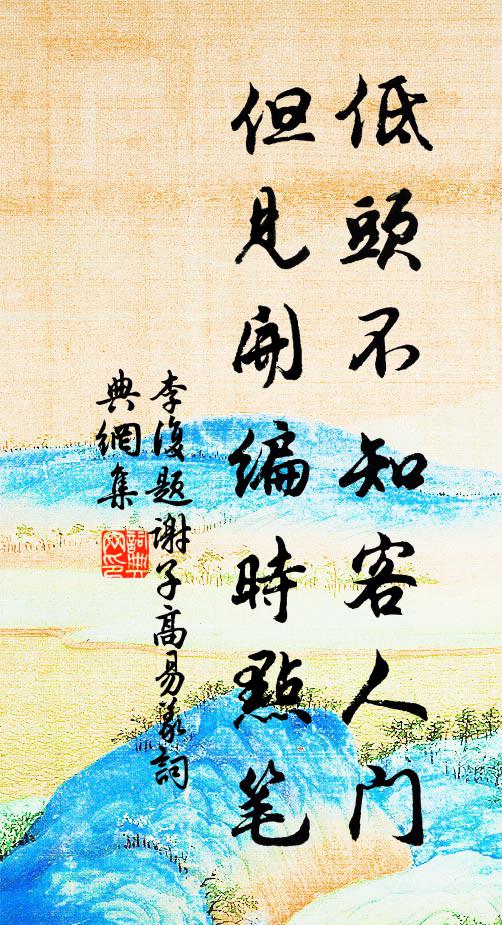 低頭不知客人門
但見開編時點笔
李復題謝子高易義詞
典網集
詞典
網印